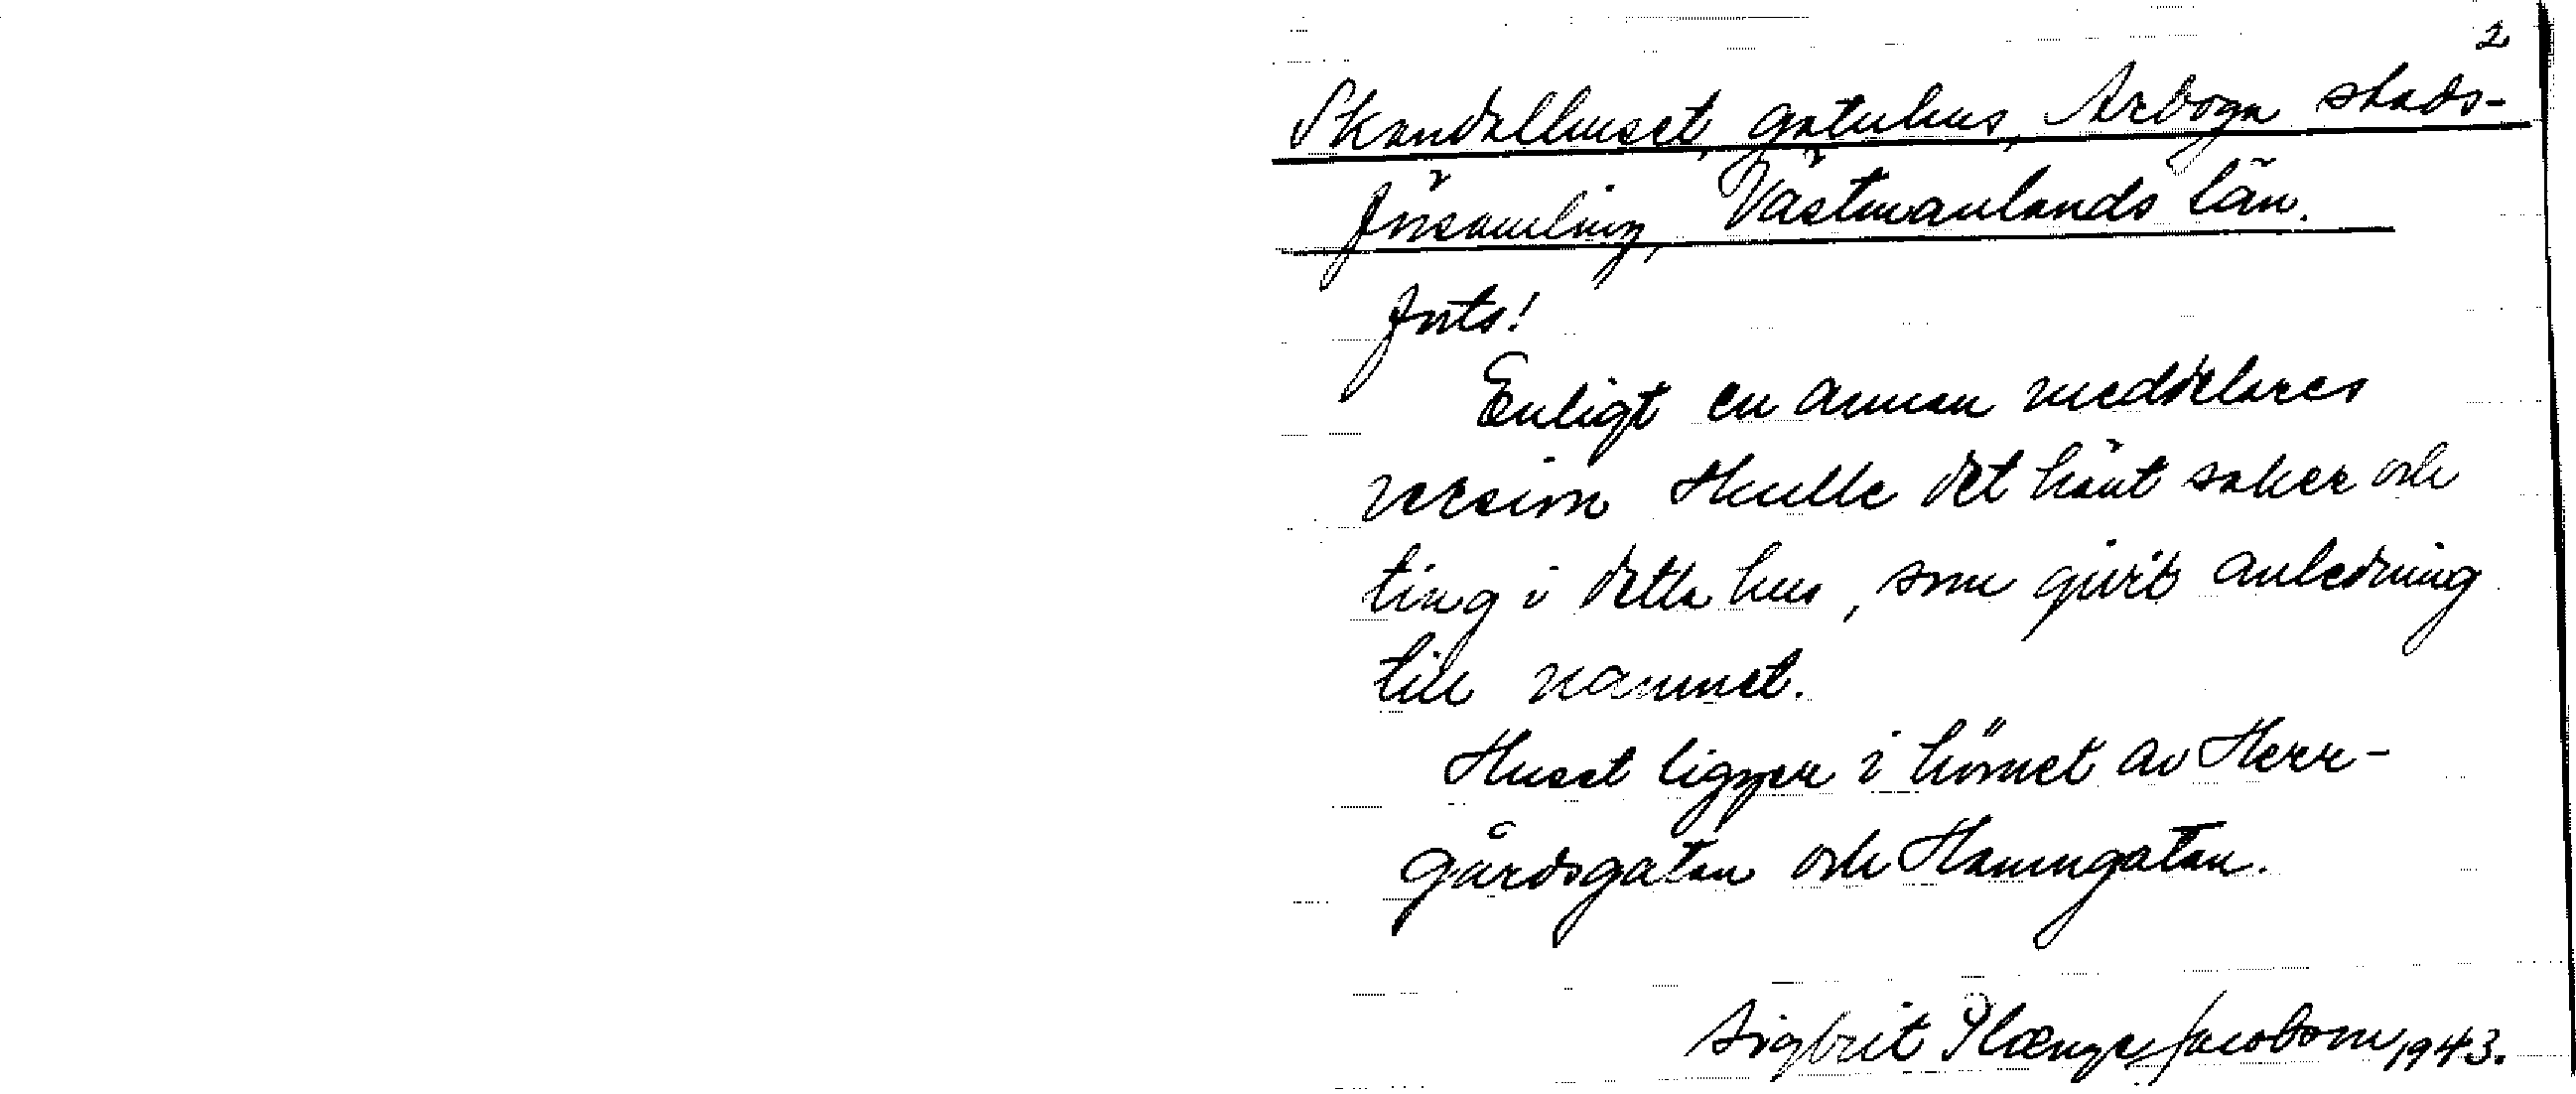 2
Skandalhuset, gatuhus, Arboga stads-
församling, Västmanlands län.
Forts!
Enligt en annan meddelares
version skulle det hänt saker och
ting i detta hus, som givit anledning
till namnet.
Huset ligger i hörnet av Herr-
gårdsgatan och Hamngatan.
Sigbrit Plænge Jacobson 1943.